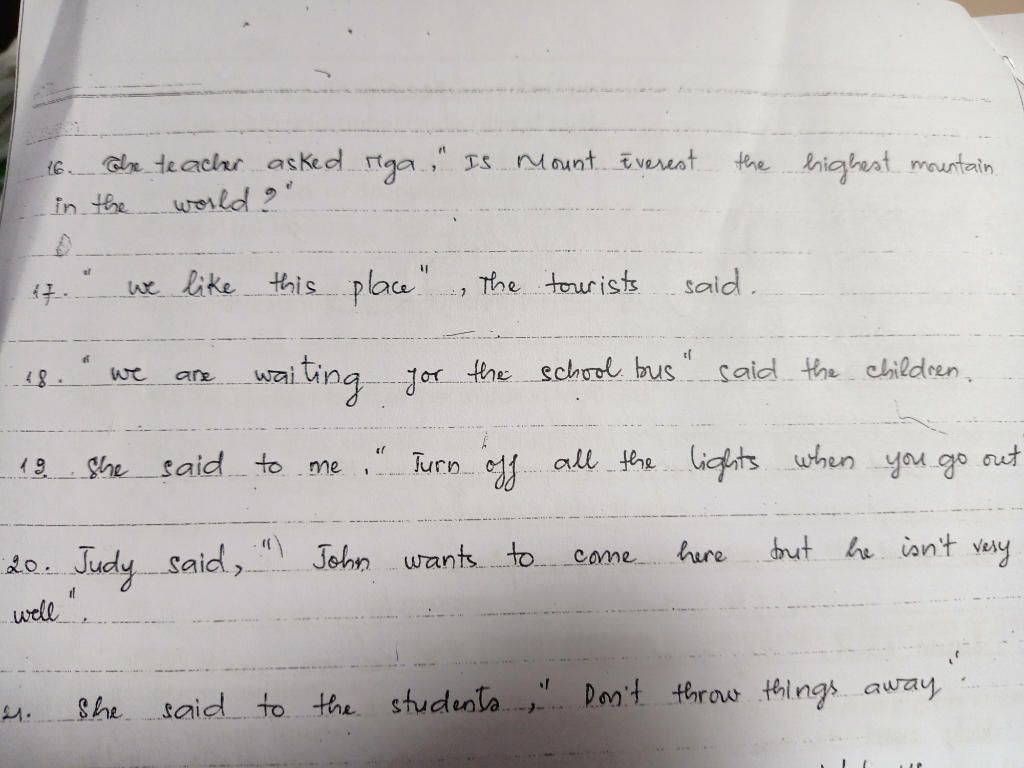 16. The teacher asked Nga, " Is Mount Everest the highest mountain
in the world ? "
17. " we like this place " , The tourists said.
18. " we are waiting for the school bus " said the children.
19. She said to me , " Turn off all the lights when you go out
20. Judy said, " John wants to come here but he isn't very
well ".
21. She said to the students , " Don't throw things away "